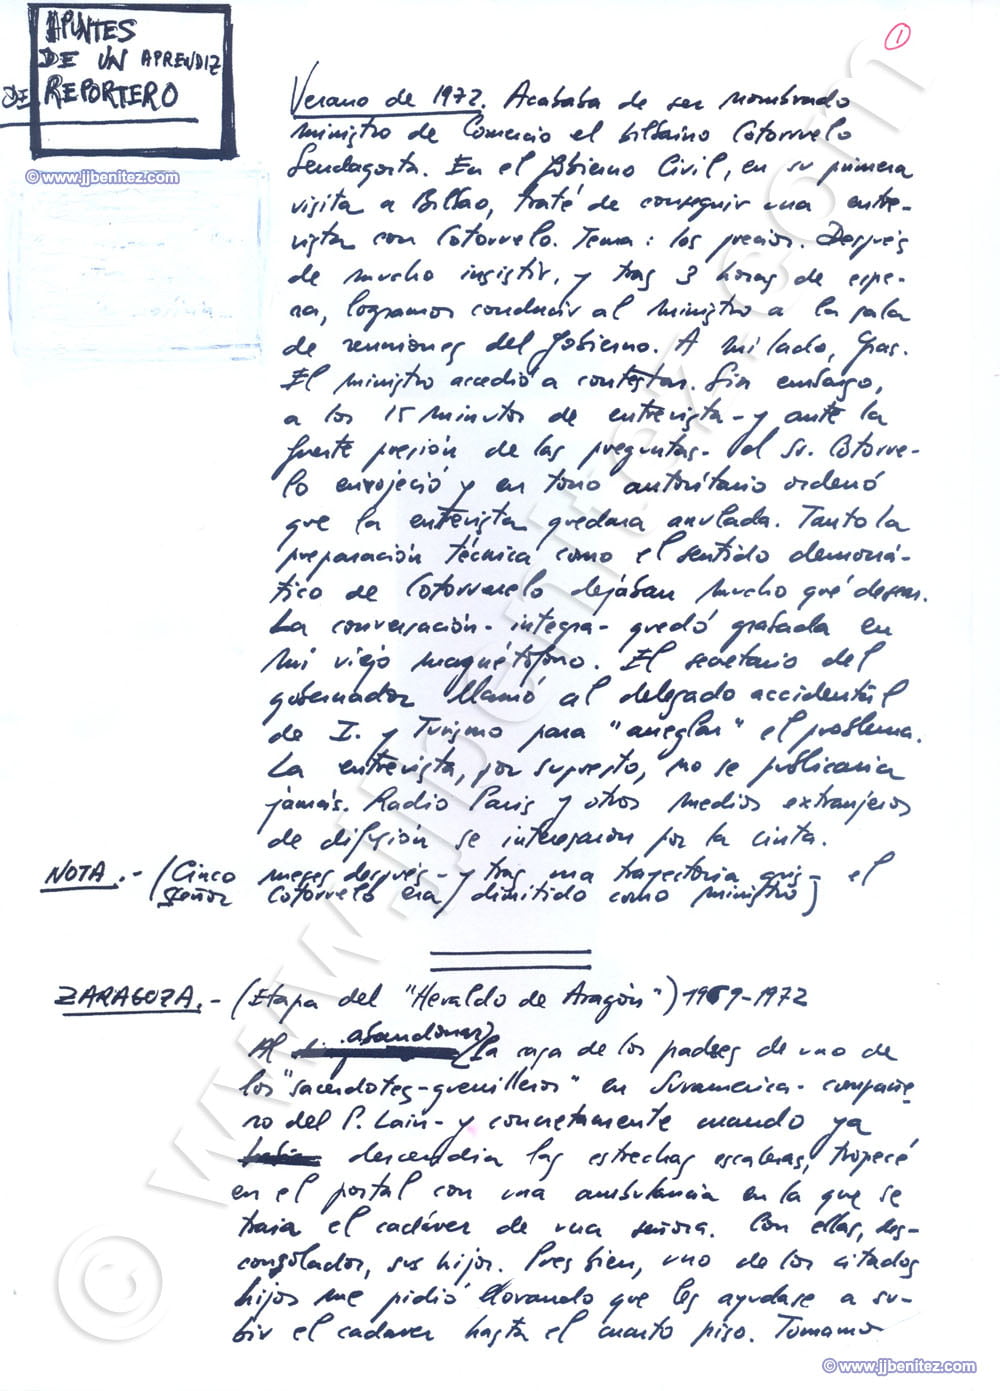 APUNTES
DE UN APRENDIZ
DE REPORTERO
1
© www.jjbenitez.com
Verano de 1972. Acababa de ser nombrado
ministro de Comercio el bilbaino Cotorruelo
Sendagorta. En el Gobierno Civil, en su primera
visita a Bilbao, traté de conseguir una entre-
vista con Cotorruelo. Tema: los precios. Después
de mucho insistir, y tras 3 horas de espe-
ra, logramos conducir al ministro a la sala
de reuniones del Gobierno. A mi lado, Gras.
El ministro accedió a contestar. Sin embargo,
a los 15 minutos de entrevista - y ante la
fuerte presión de las preguntas - el Sr. Cotorrue-
lo enrojeció y en tono autoritario ordenó
que la entrevista quedara anulada. Tanto la
preparación técnica como el sentido democrá-
tico de Cotorruelo dejaban mucho qué desear.
La conversación - integra - quedó grabada en
mi viejo magnétofono. El secretario del
gobernador llamó al delegado accidental
de I. y Turismo para "arreglar" el problema.
La entrevista, por supuesto, no se publicaria
jamás. Radio Paris y otros medios extranjeros
de difusión se interesaron por la cinta.
NOTA.- (Cinco meses después - y tras una trayectoria gris - el
señor Cotorruelo era dimitido como ministro)
ZARAGOZA.- (Etapa del "Heraldo de Aragón") 1969-1972
Al abandonar la casa de los padres de uno de
los "sacerdotes-guerrilleros" en Suramerica - compañe-
ro del P. Lain - y concretamente cuando ya
descendia las estrechas escaleras, tropecé
en el portal con una ambulancia en la que se
traia el cadáver de una señora. Con ellas, des-
consolados, sus hijos. Pues bien, uno de los citados
hijos me pidió llorando que les ayudase a su-
bir el cadaver hasta el cuarto piso. Tomamos
© www.jjbenitez.com
www.jjbenitez.com